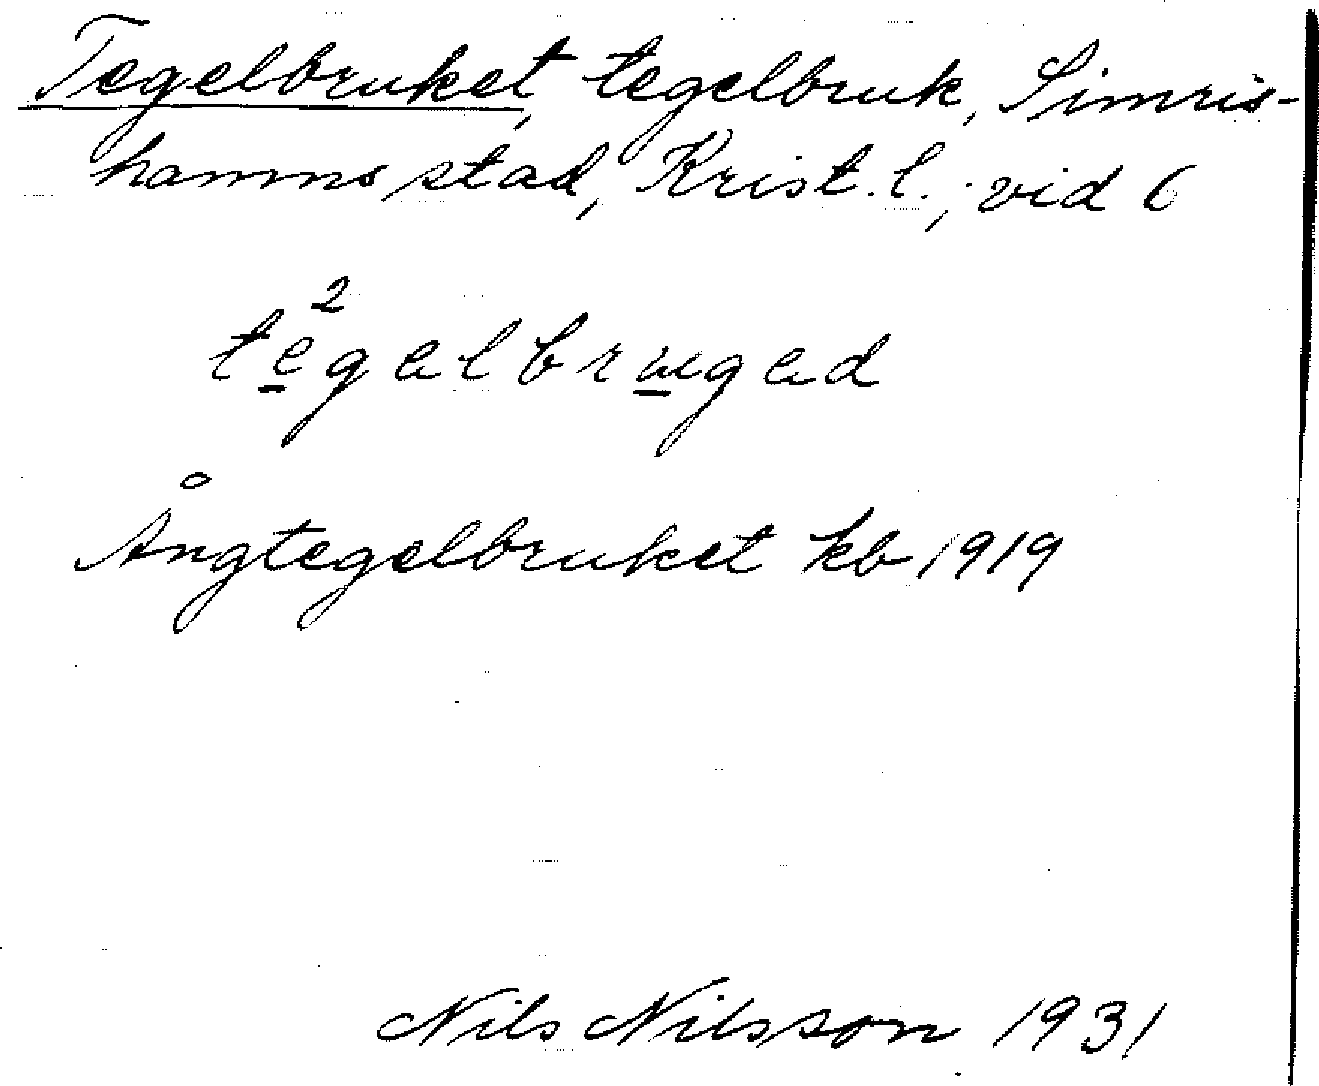 Tegelbruket, tegelbruk, Simris-
hamns stad, Krist. l., vid 6
te²gelbruged
Ångtegelbruket kb 1919
Nils Nilsson 1931